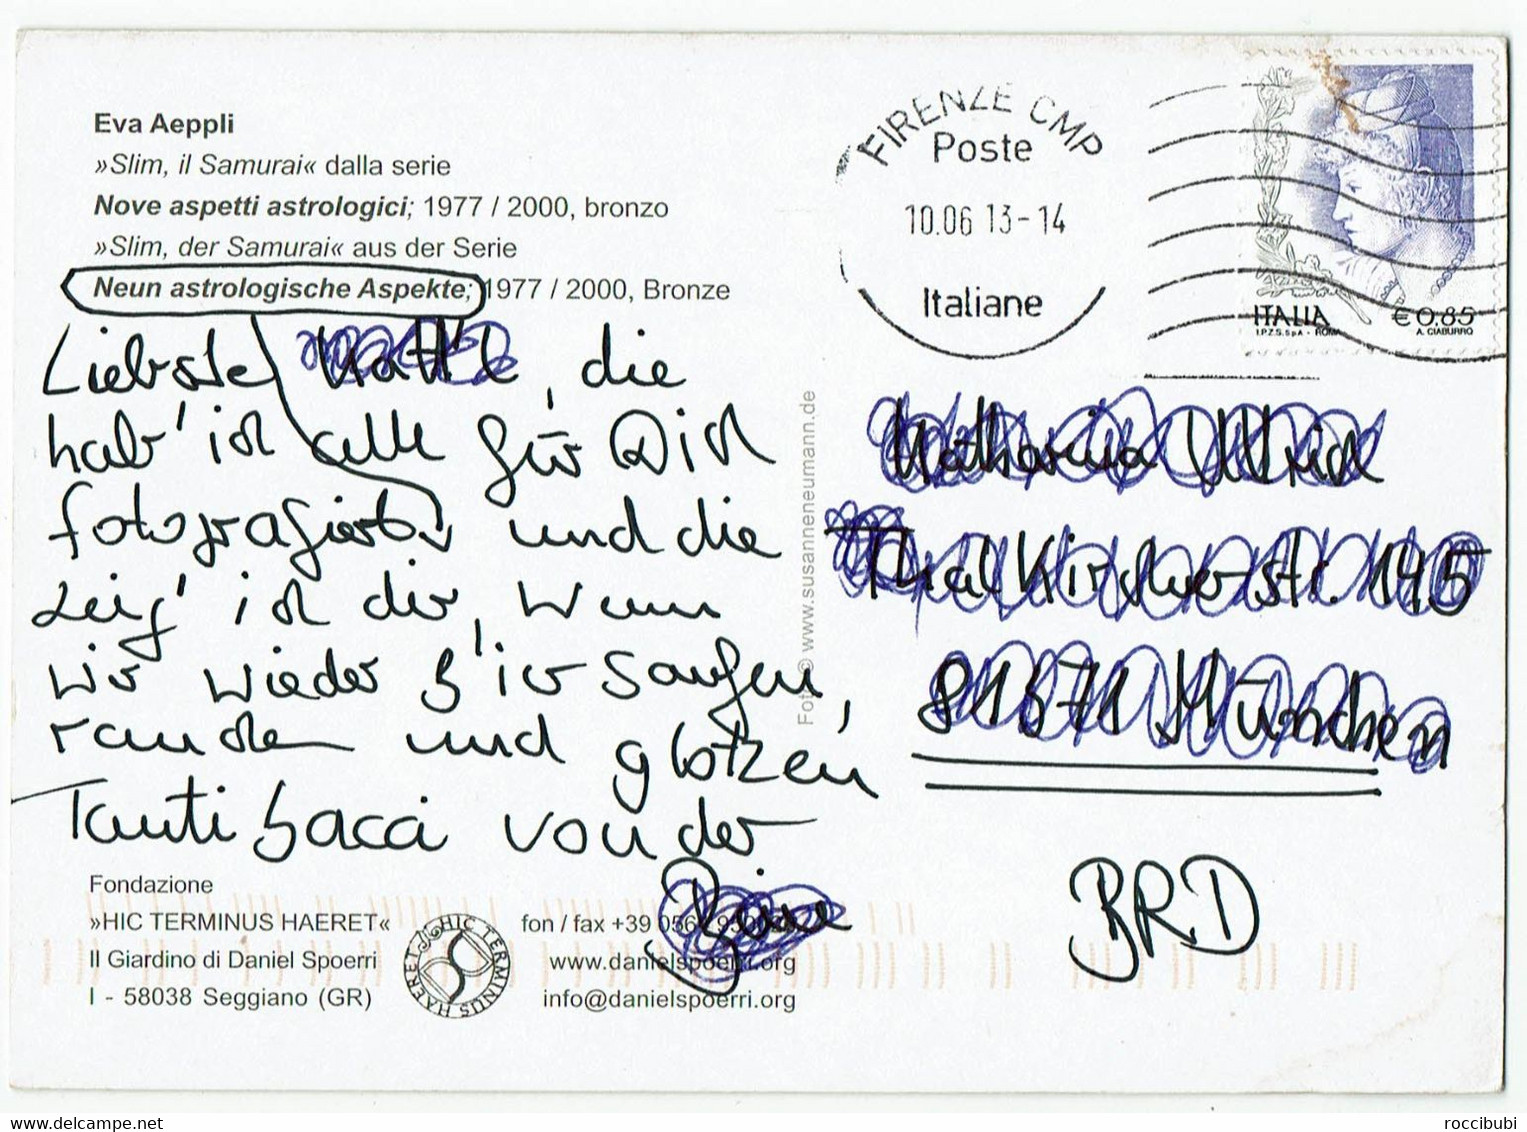 Eva Aeppli
»Slim, il Samurai« dalla serie
Nove aspetti astrologici; 1977 / 2000, bronzo
»Slim, der Samurai« aus der Serie
Neun astrologische Aspekte; 1977 / 2000, Bronze
Liebste , die
hab' ich alle für Dich
fotografiert und die
zeig' ich dir, wenn
wir wieder B'ier saufen,
rauchen und glotzen
Tanti baci von der
Fondazione
»HIC TERMINUS HAERET«
Il Giardino di Daniel Spoerri
I - 58038 Seggiano (GR)
HIC TERMINUS HAERET
fon / fax +39
www.danielspoerri.org
info@danielspoerri.org
Foto © www.susanneneumann.de
FIRENZE CMP
Poste
10.06 13-14
Italiane
ITALIA € 0,85
I.P.Z.S. S.p.A. - ROMA A. CIABURRO
BRD
www.delcampe.net
roccibubi